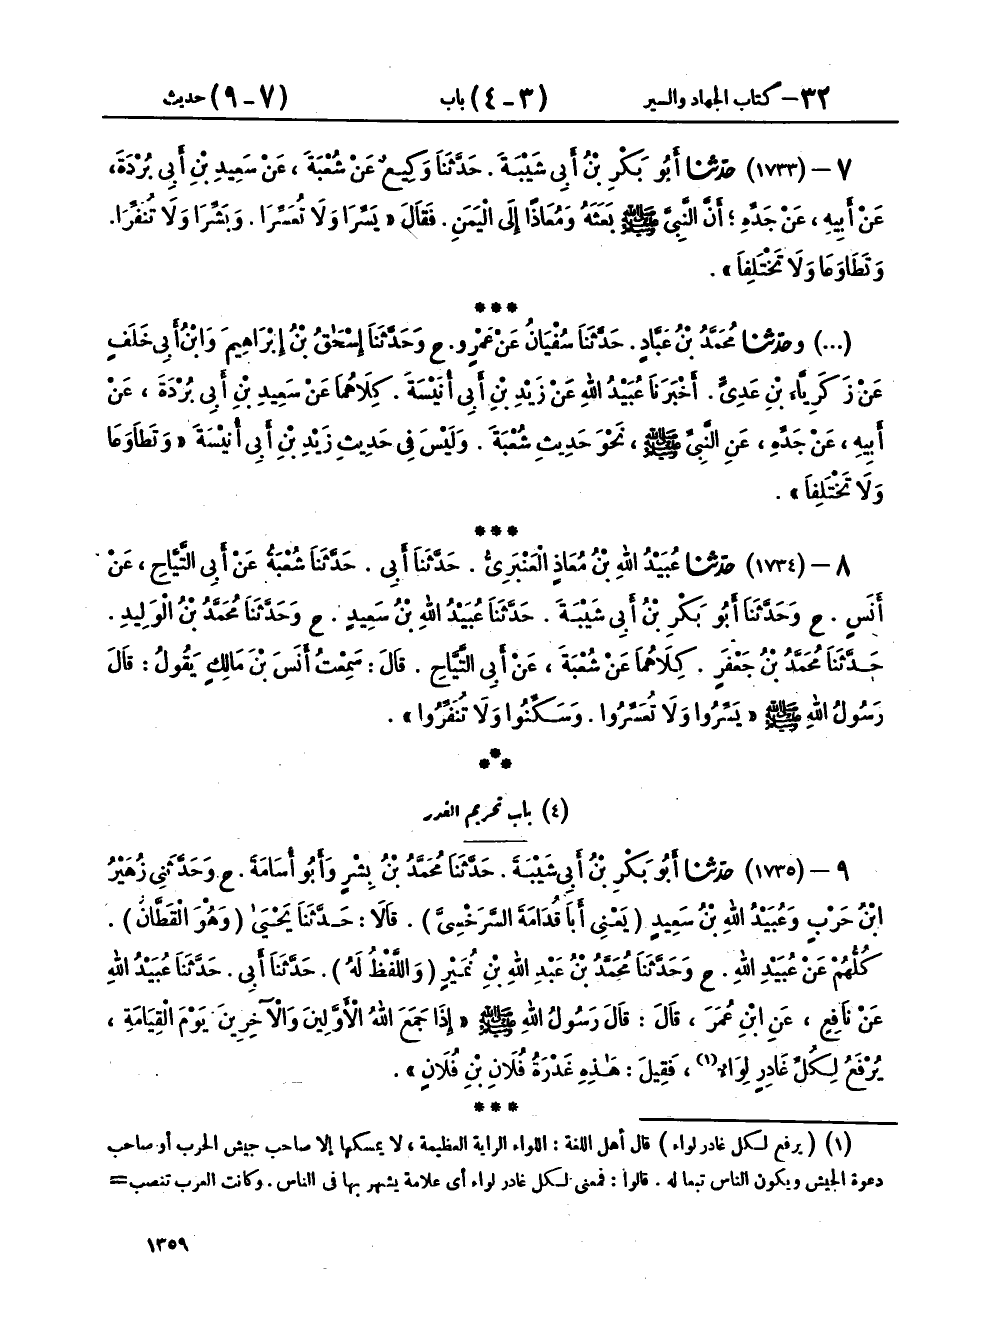 ٣٢ – كتاب الجهاد والسير (٣ - ٤) باب (٧ - ٩) حديث
٧ – (١٧٣٣) حَدَّثَنَا أَبُو بَكْرِ بْنُ أَبِي شَيْبَةَ . حَدَّثَنَا وَكِيعٌ عَنْ شُعْبَةَ ، عَنْ سَعِيدِ بْنِ أَبِي بُرْدَةَ،
عَنْ أَبِيهِ ، عَنْ جَدِّهِ ؛ أَنَّ النَّبِيَّ ﷺ بَعَثَهُ وَمُعَاذًا إِلَى الْيَمَنِ . فَقَالَ « يَسِّرَا وَلَا تُعَسِّرَا . وَبَشِّرَا وَلَا تُنَفِّرَا.
وَتَطَاوَعَا وَلَا تَخْتَلِفَا » .
***
(...) وحَدَّثَنَا مُحَمَّدُ بْنُ عَبَّادٍ. حَدَّثَنَا سُفْيَانُ عَنْ عَمْرٍو. ح وَحَدَّثَنَا إِسْحَٰقُ بْنُ إِبْرَاهِيمَ وَابْنُ أَبِي خَلَفٍ
عَنْ زَكَرِيَّاءَ بْنِ عَدِيٍّ . أَخْبَرَنَا عُبَيْدُ اللهِ عَنْ زَيْدِ بْنِ أَبِي أُنَيْسَةَ . كِلَاهُمَا عَنْ سَعِيدِ بْنِ أَبِي بُرْدَةَ ، عَنْ
أَبِيهِ ، عَنْ جَدِّهِ ، عَنِ النَّبِيِّ ﷺ ، نَحْوَ حَدِيثِ شُعْبَةَ . وَلَيْسَ فِي حَدِيثِ زَيْدِ بْنِ أَبِي أُنَيْسَةَ « وَتَطَاوَعَا
وَلَا تَخْتَلِفَا » .
***
٨ – (١٧٣٤) حَدَّثَنَا عُبَيْدُ اللهِ بْنُ مُعَاذٍ الْعَنْبَرِيُّ . حَدَّثَنَا أَبِي . حَدَّثَنَا شُعْبَةُ عَنْ أَبِي التَّيَّاحِ ، عَنْ
أَنَسٍ . ح وَحَدَّثَنَا أَبُو بَكْرِ بْنُ أَبِي شَيْبَةَ . حَدَّثَنَا عُبَيْدُ اللهِ بْنُ سَعِيدٍ . ح وَحَدَّثَنَا مُحَمَّدُ بْنُ الْوَلِيدِ .
حَدَّثَنَا مُحَمَّدُ بْنُ جَعْفَرٍ . كِلَاهُمَا عَنْ شُعْبَةَ ، عَنْ أَبِي التَّيَّاحِ . قَالَ : سَمِعْتُ أَنَسَ بْنَ مَالِكٍ يَقُولُ : قَالَ
رَسُولُ اللهِ ﷺ « يَسِّرُوا وَلَا تُعَسِّرُوا . وَسَكِّنُوا وَلَا تُنَفِّرُوا » .
***
(٤) باب تحريم الغدر
٩ – (١٧٣٥) حَدَّثَنَا أَبُو بَكْرِ بْنُ أَبِي شَيْبَةَ . حَدَّثَنَا مُحَمَّدُ بْنُ بِشْرٍ وَأَبُو أُسَامَةَ . ح وَحَدَّثَنِي زُهَيْرُ
ابْنُ حَرْبٍ وَعُبَيْدُ اللهِ بْنُ سَعِيدٍ (يَعْنِي أَبَا قُدَامَةَ السَّرَخْسِيَّ) . قَالَا : حَدَّثَنَا يَحْيَىٰ (وَهُوَ الْقَطَّانُ) .
كُلُّهُمْ عَنْ عُبَيْدِ اللهِ . ح وَحَدَّثَنَا مُحَمَّدُ بْنُ عَبْدِ اللهِ بْنِ نُمَيْرٍ (وَاللَّفْظُ لَهُ) . حَدَّثَنَا أَبِي . حَدَّثَنَا عُبَيْدُ اللهِ
عَنْ نَافِعٍ ، عَنِ ابْنِ عُمَرَ ، قَالَ : قَالَ رَسُولُ اللهِ ﷺ « إِذَا جَمَعَ اللهُ الْأَوَّلِينَ وَالْآخِرِينَ يَوْمَ الْقِيَامَةِ ،
يُرْفَعُ لِكُلِّ غَادِرٍ لِوَاءٌ(١) ، فَقِيلَ : هَٰذِهِ غَدْرَةُ فُلَانِ بْنِ فُلَانٍ » .
***
(١) ( يرفع لكل غادر لواء ) قال أهل اللغة : اللواء الراية العظيمة ، لا يمسكها إلا صاحب جيش الحرب أو صاحب
دعوة الجيش ويكون الناس تبعا له . قالوا : فمعنى لكل غادر لواء أى علامة يشهر بها فى الناس . وكانت العرب تنصب=
١٣٥٩